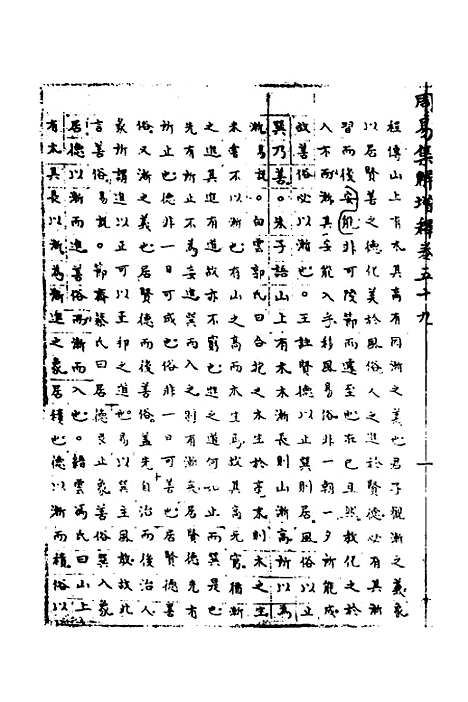 周易集解增釋卷五十九
程傳山上有木其高有因漸之義也君子觀漸之義象
以居賢善之德化美於風俗人之進於賢德必有其漸
習而後安能非可陵節而遽至也在已且然教化之於
人不以漸其安能入乎移風易俗非一朝一夕所能成
故善俗必以漸也。王註賢德以止巽則居風俗以止
巽乃善。朱子語山上有木木漸長則山漸高所以為
漸。白雲郭氏曰合抱之木生於毫末則木之生
未嘗不以漸也有山之高而木生焉故其高尤宜循漸
之進其進有道故亦不窮也進之道何也止而巽是也
先有所止不為妄進巽而入之則有漸矣居賢德先有
所止也德非一日可成也俗非一日可善也居賢德善
俗又漸之義也居賢德而後善俗蓋先自治而後治人
彖所謂進以正可以正邦之道也易以巽主風教故此
言善俗易說。節齋蔡氏曰居德艮止象善俗巽入象
居德以漸而進善俗以漸而入也。縉雲馮氏曰山上
有木其長以漸為漸進之象居積也德以漸而積俗以